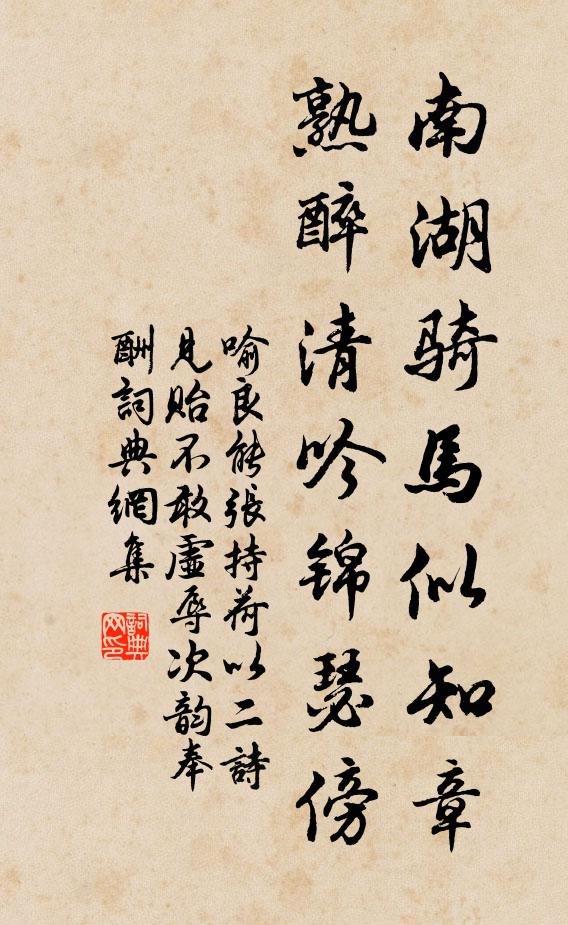 南湖骑馬似知章
熟醉清吟锦瑟傍
喻良能張持荷以二詩
見貽不敢虛辱次韵奉
酬詞典網集
詞典
网印